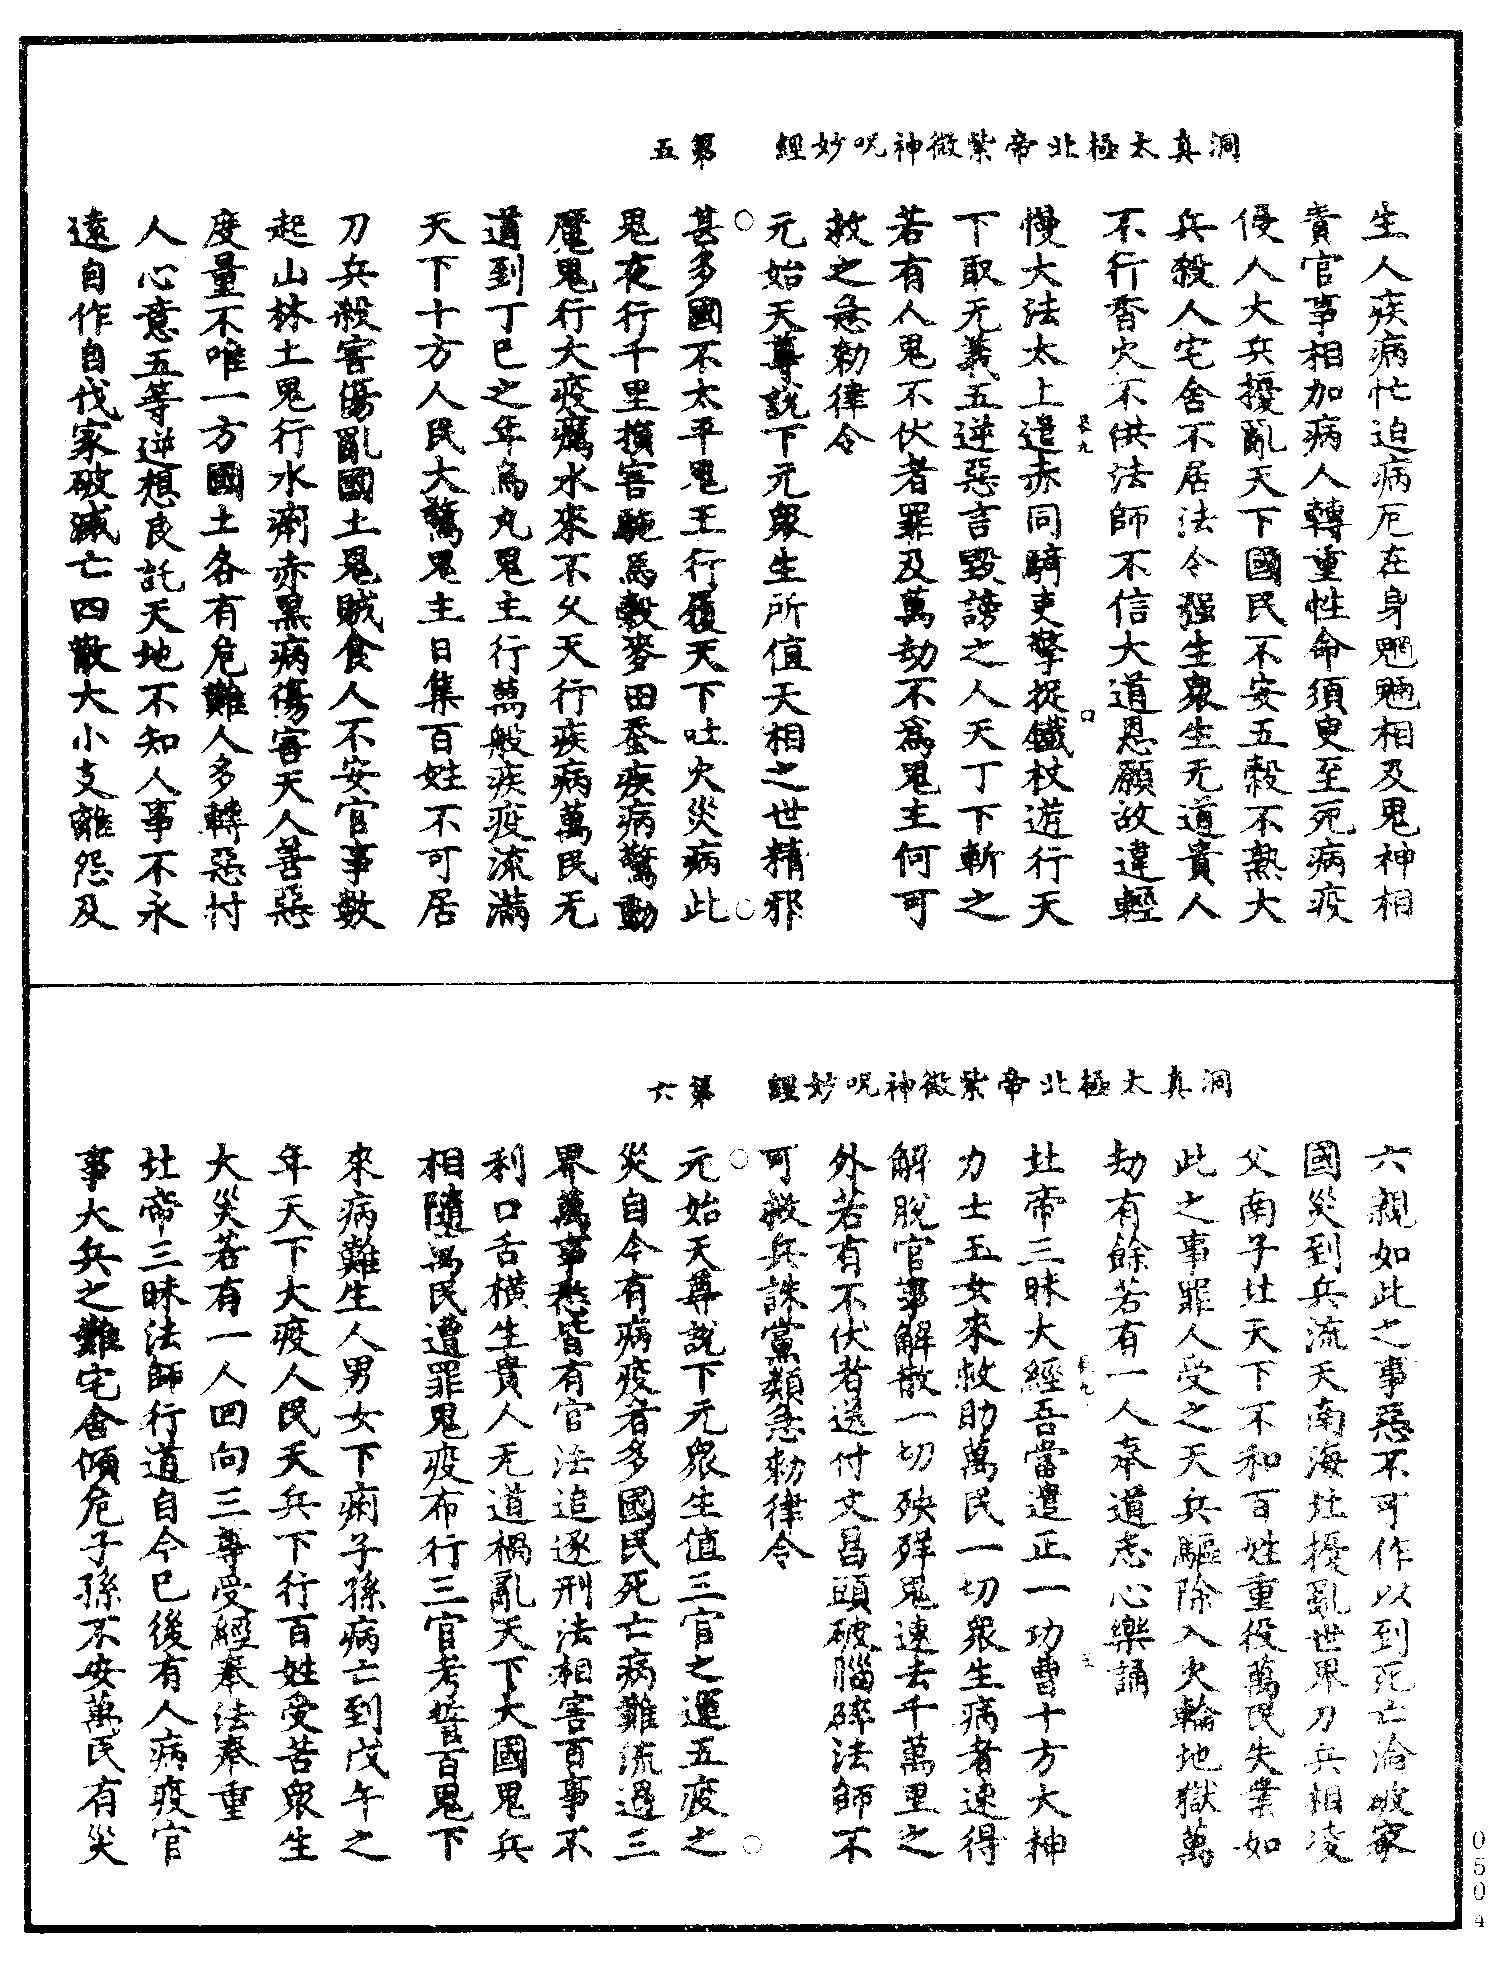 洞真太極北帝紫微神呪妙經　第五
生人疾病忙迫病厄在身魍魎相及鬼神相
責官事相加病人轉重性命須臾至死病疫
侵人大兵擾亂天下國民不安五穀不熟大
兵殺人宅舍不居法令强生衆生无道貴人
不行香火不供法師不信大道恩願故違輕
慢大法太上遣赤同騎吏擎捉鐵杖遊行天
下取无義五逆惡言毀謗之人天丁下斬之
若有人鬼不伏者罪及萬劫不爲鬼主何可
救之急勑律令
元始天尊說下元衆生所值天相之世精邪
甚多國不太平鬼王行履天下吐火災病此
鬼夜行千里損害駞馬穀麥田蚕疾病驚動
魔鬼行大疫癘水來不乆天行疾病萬民无
道到丁巳之年烏丸鬼主行萬般疾疫流滿
天下十方人民大驚鬼主日集百姓不可居
刀兵殺害傷亂國土鬼賊食人不安官事數
起山林土鬼行水痢赤黑病傷害天人善惡
度量不唯一方國土各有危難人多轉惡忖
人心意五等逆想良託天地不知人事不永
遠自作自伐家破滅亡四散大小支離怨及
洞真太極北帝紫微神呪妙經　第六
六親如此之事惡不可作以到死亡淪破家
國災到兵流天南海北擾亂世界刀兵相凌
父南子北天下不和百姓重役萬民失業如
此之事罪人受之天兵驅除入火輪地獄萬
劫有餘若有一人奉道志心樂誦
北帝三昧大經吾當遣正一功曹十方大神
力士玉女來救助萬民一切衆生病者速得
解脫官事解散一切殃殍鬼速去千萬里之
外若有不伏者送付文昌頭破腦碎法師不
可救兵誅黨類急勑律令
元始天尊說下元衆生值三官之運五疫之
災自今有病疫者多國民死亡病難流過三
界萬事愁皆有官法追逐刑法相害百事不
利口舌橫生貴人无道禍亂天下大國鬼兵
相隨萬民遭罪鬼疫布行三官考誓百鬼下
來病難生人男女下痢子孫病亡到戊午之
年天下大疫人民天兵下行百姓受苦衆生
大災若有一人回向三尊受經奉法奉重
北帝三昧法師行道自今巳後有人病疫官
事大兵之難宅舍傾危子孫不安萬民有災
0504